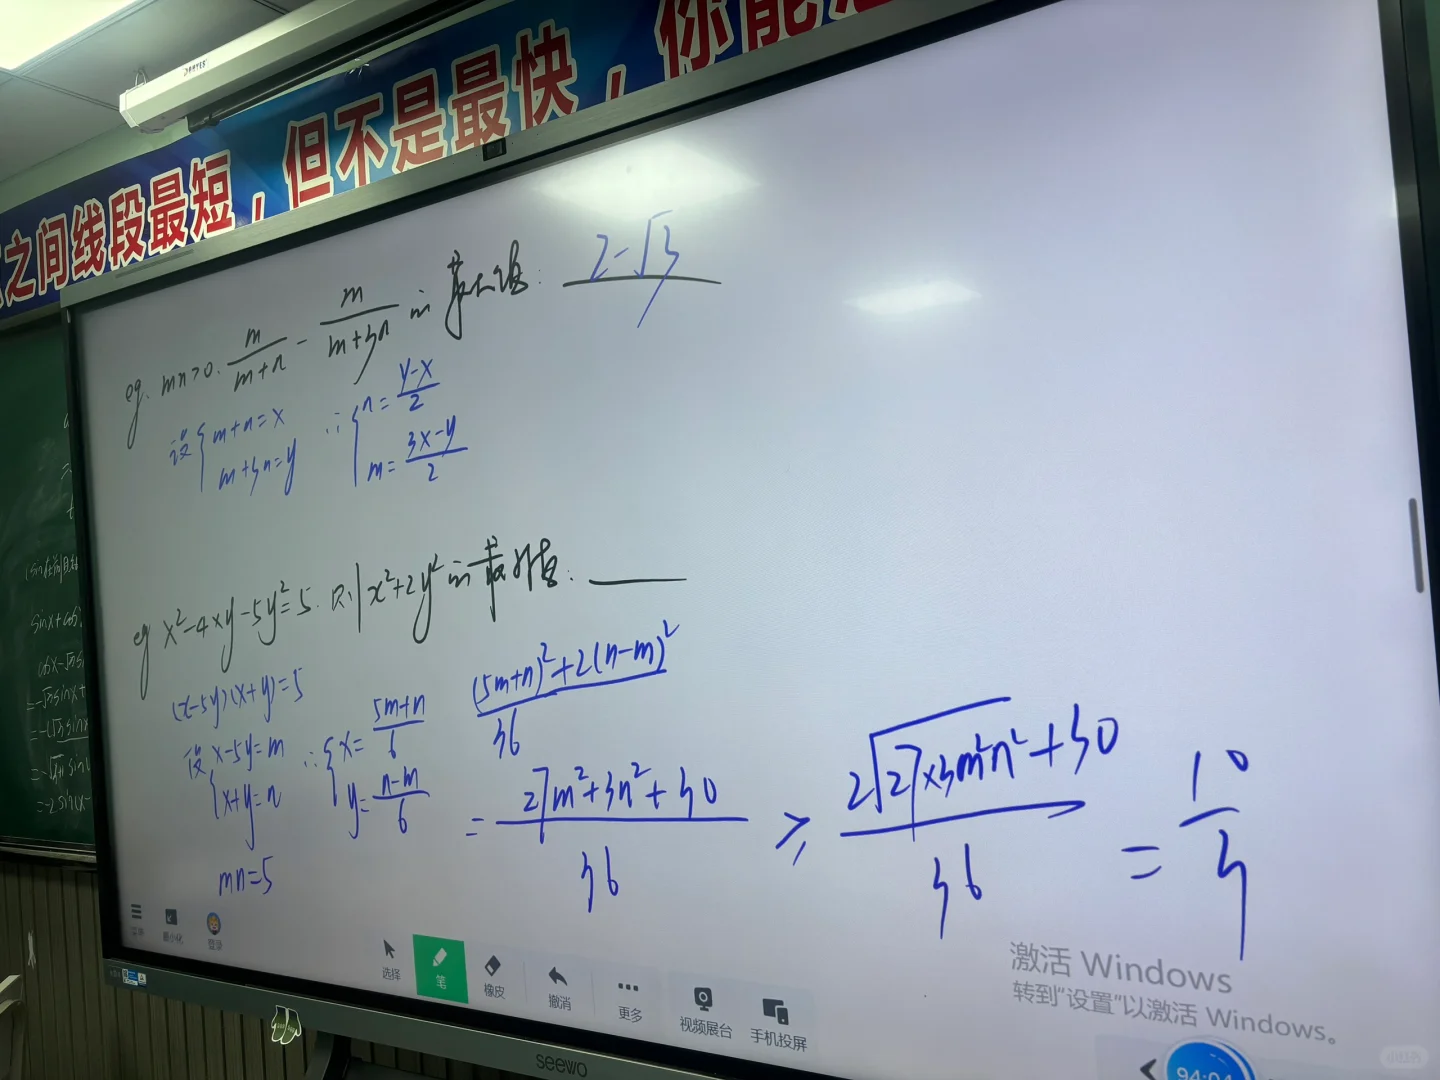 之间线段最短，但不是最快，你能
eg. mn>0. \frac{m}{m+n} - \frac{m}{m+3n} 的最大值: 2-√3
设 { m+n=x ∴ { n=\frac{y-x}{2}
m+3n=y m=\frac{3x-y}{2}
eg x²-4xy-5y²=5. 则 x²+2y² 的最小值: ____
(x-5y)(x+y)=5
设 { x-5y=m ∴ { x=\frac{5m+n}{6}
x+y=n y=\frac{n-m}{6}
mn=5
\frac{(5m+n)²+2(n-m)²}{36}
= \frac{27m²+3n²+30}{36} ≥ \frac{2√{27×3m²n²}+30}{36} = \frac{10}{3}
菜单 最小化 登录
选择 笔 橡皮 撤消 更多 视频展台 手机投屏
激活 Windows
转到"设置"以激活 Windows。
seewo
94:04
小红书